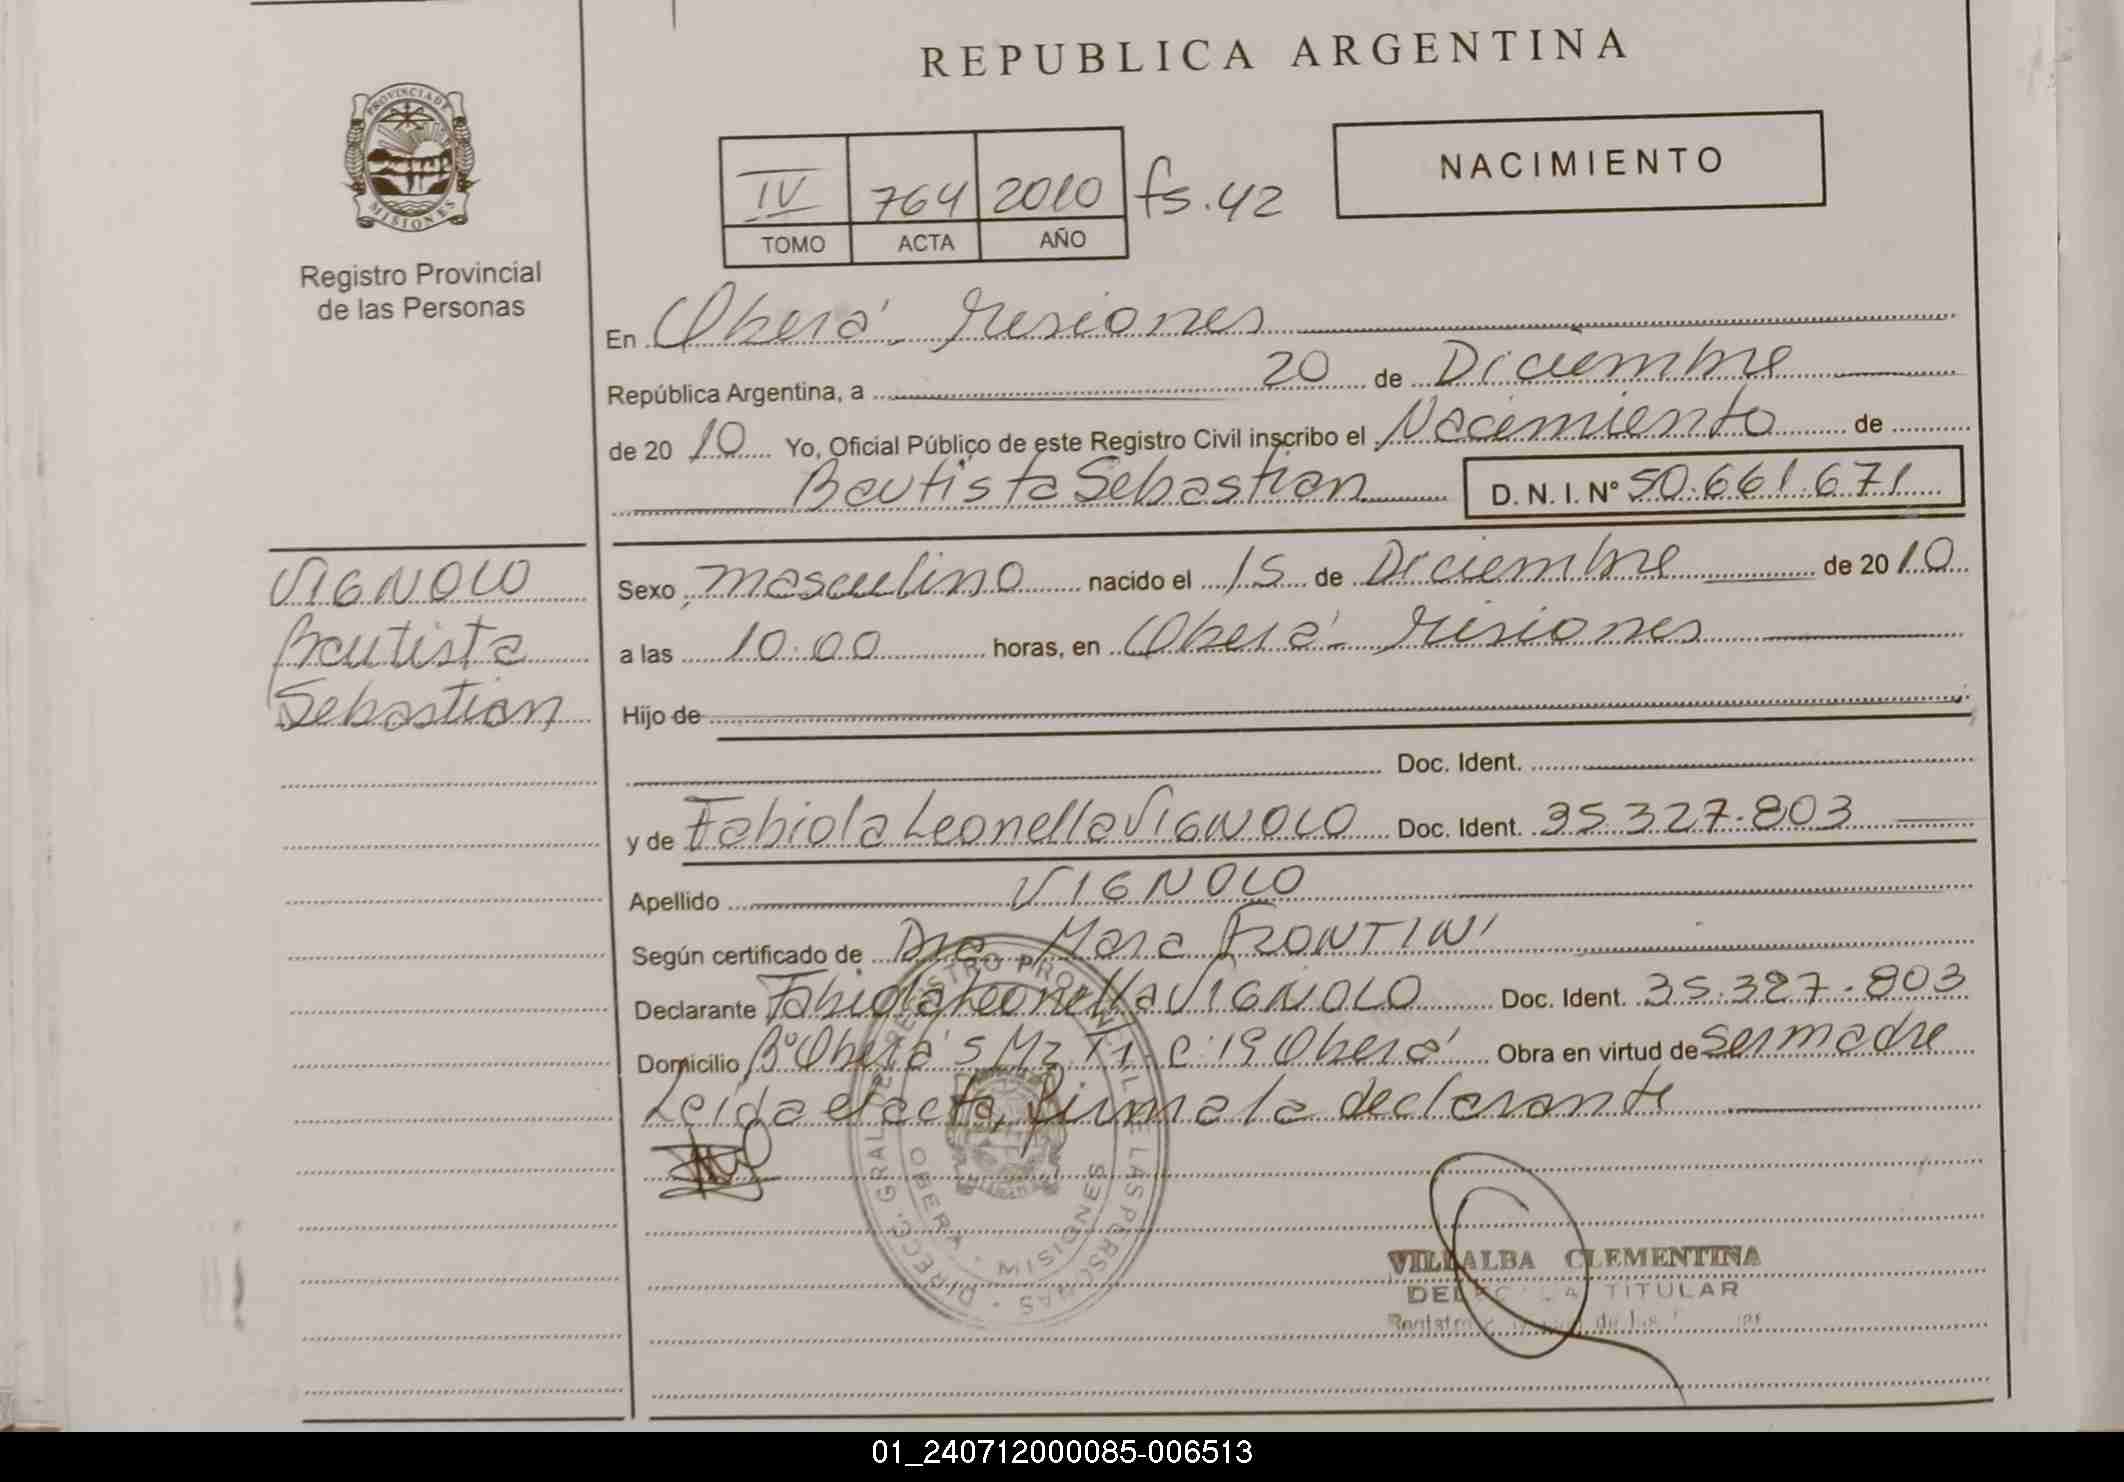 REPUBLICA ARGENTINA
PROVINCIA DE MISIONES
Registro Provincial
de las Personas
NACIMIENTO
IV 764 2010 fs. 42
TOMO ACTA AÑO
En Oberá - Misiones
República Argentina, a 20 de Diciembre
de 20 10 Yo, Oficial Público de este Registro Civil inscribo el Nacimiento de
Bautista Sebastian D. N. I. Nº 50.661.671
VIGNOLO
Bautista
Sebastian
Sexo masculino nacido el 15 de Diciembre de 20 10
a las 10:00 horas, en Oberá - Misiones
Hijo de
Doc. Ident.
y de Fabiola Leonella VIGNOLO Doc. Ident. 35.327.803
Apellido VIGNOLO
Según certificado de Dra Mara FRONTINI
Declarante Fabiola Leonella VIGNOLO Doc. Ident. 35.327.803
Domicilio Bº Oberá 5 Mz T1 C:19 Oberá Obra en virtud de ser madre
Leida el acta, firma la declarante
DIRECC. GRAL. DE REGISTRO PROVINCIAL DE LAS PERSONAS
OBERA - MISIONES
VILLALBA CLEMENTINA
DELEGADA TITULAR
01_240712000085-006513